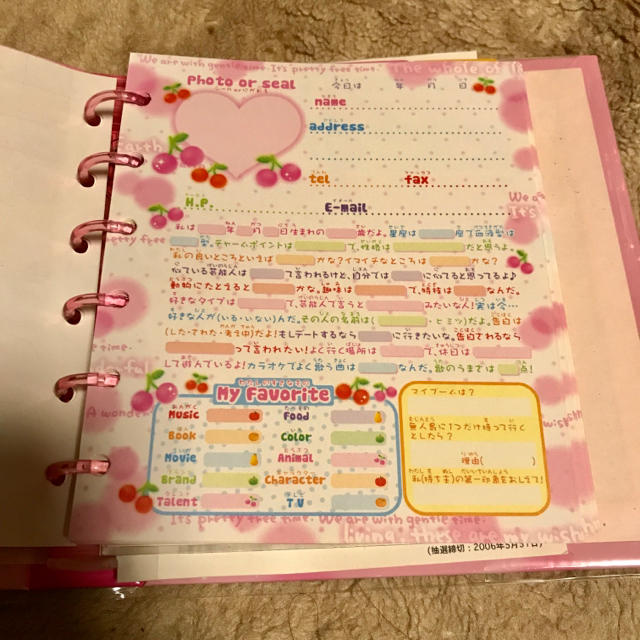 "We are with gentle time. It's pretty free time."
The whole of
Photo or seal
今日は 年 月 日
name
address
tel fax
H.P. E-mail
私は 年 月 日生まれの 歳だよ。星座は 座で血液型は
型。チャームポイントは で、性格は だと思うよ。
私の良いところといえば かな?イマイチなところは かな?
似ている芸能人は って言われるけど、自分では に似てると思ってるよ♪
動物にたとえると かな。趣味は で、特技は なんだ。
好きなタイプは で、芸能人で言うと みたいな人!実は今…
好きな人が(いる・いない)んだ。その人の名前は( ・ヒミツ)だよ。告白は
(した・てわた・まだ中)だよ!もしデートするなら に行きたいな。告白されるなら
って言われたい!よく行く場所は で、休日は
して遊んでいるよ!カラオケでよく歌う曲は なんだ。歌のうまさは 点!
My Favorite
Music Food
Book Color
Movie Animal
Brand Character
Talent TV
マイブームは?
無人島に1つだけ持って行く
としたら?
理由( )
私(持ち主)の第一印象をおしえて!
It's pretty free time. We are with gentle time.
(抽選締切:2006年5月31日)